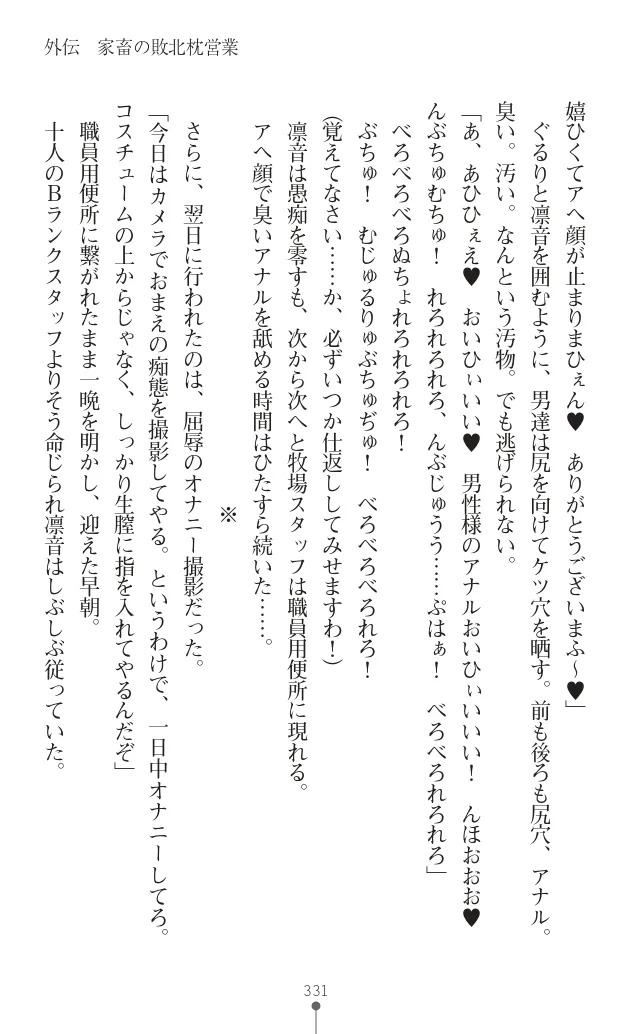 外伝　家畜の敗北枕営業
嬉ひくてアヘ顔が止まりまひぇん♥　ありがとうございまふ～♥」
　ぐるりと凛音を囲むように、男達は尻を向けてケツ穴を晒す。前も後ろも尻穴、アナル。
臭い。汚い。なんという汚物。でも逃げられない。
「あ、あひひぇえ♥　おいひぃいい♥　男性様のアナルおいひぃいいい！　んほおおお♥
んぶちゅむちゅ！　れろれろれろ、んぶじゅうう……ぷはぁ！　べろべろれろれろ」
　べろべろべろぬちょれろれろれろ！
　ぶちゅ！　むじゅるりゅぶちゅぢゅ！　べろべろべろれろ！
（覚えてなさい……か、必ずいつか仕返ししてみせますわ！）
　凛音は愚痴を零すも、次から次へと牧場スタッフは職員用便所に現れる。
　アヘ顔で臭いアナルを舐める時間はひたすら続いた……。
※
　さらに、翌日に行われたのは、屈辱のオナニー撮影だった。
「今日はカメラでおまえの痴態を撮影してやる。というわけで、一日中オナニーしてろ。
コスチュームの上からじゃなく、しっかり生膣に指を入れてやるんだぞ」
　職員用便所に繋がれたまま一晩を明かし、迎えた早朝。
　十人のＢランクスタッフよりそう命じられ凛音はしぶしぶ従っていた。
331